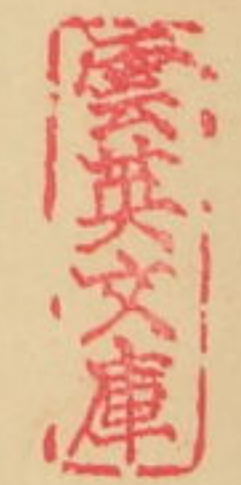 雲英文庫